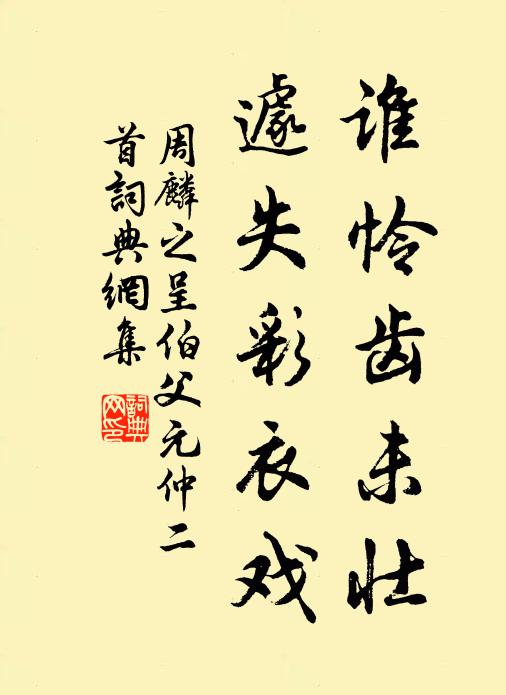 谁怜齿未壮
遽失彩衣戏
周麟之呈伯父元仲二
首詞典網集
詞典
网印